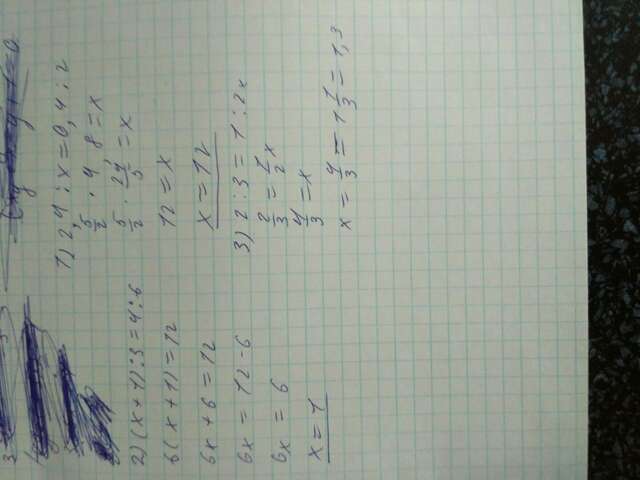 1) 2,4 : x = 0,4 : 2
5/2 · 4 8 = x
5/2 · 24/5 = x
12 = x
x = 12
2) (x + 1) : 3 = 4 : 6
6(x + 1) = 12
6x + 6 = 12
6x = 12 - 6
6x = 6
x = 1
3) 2 : 3 = 1 : 2x
2/3 = 1/2 x
4/3 = x
x = 4/3 = 1 1/3 = 1,3